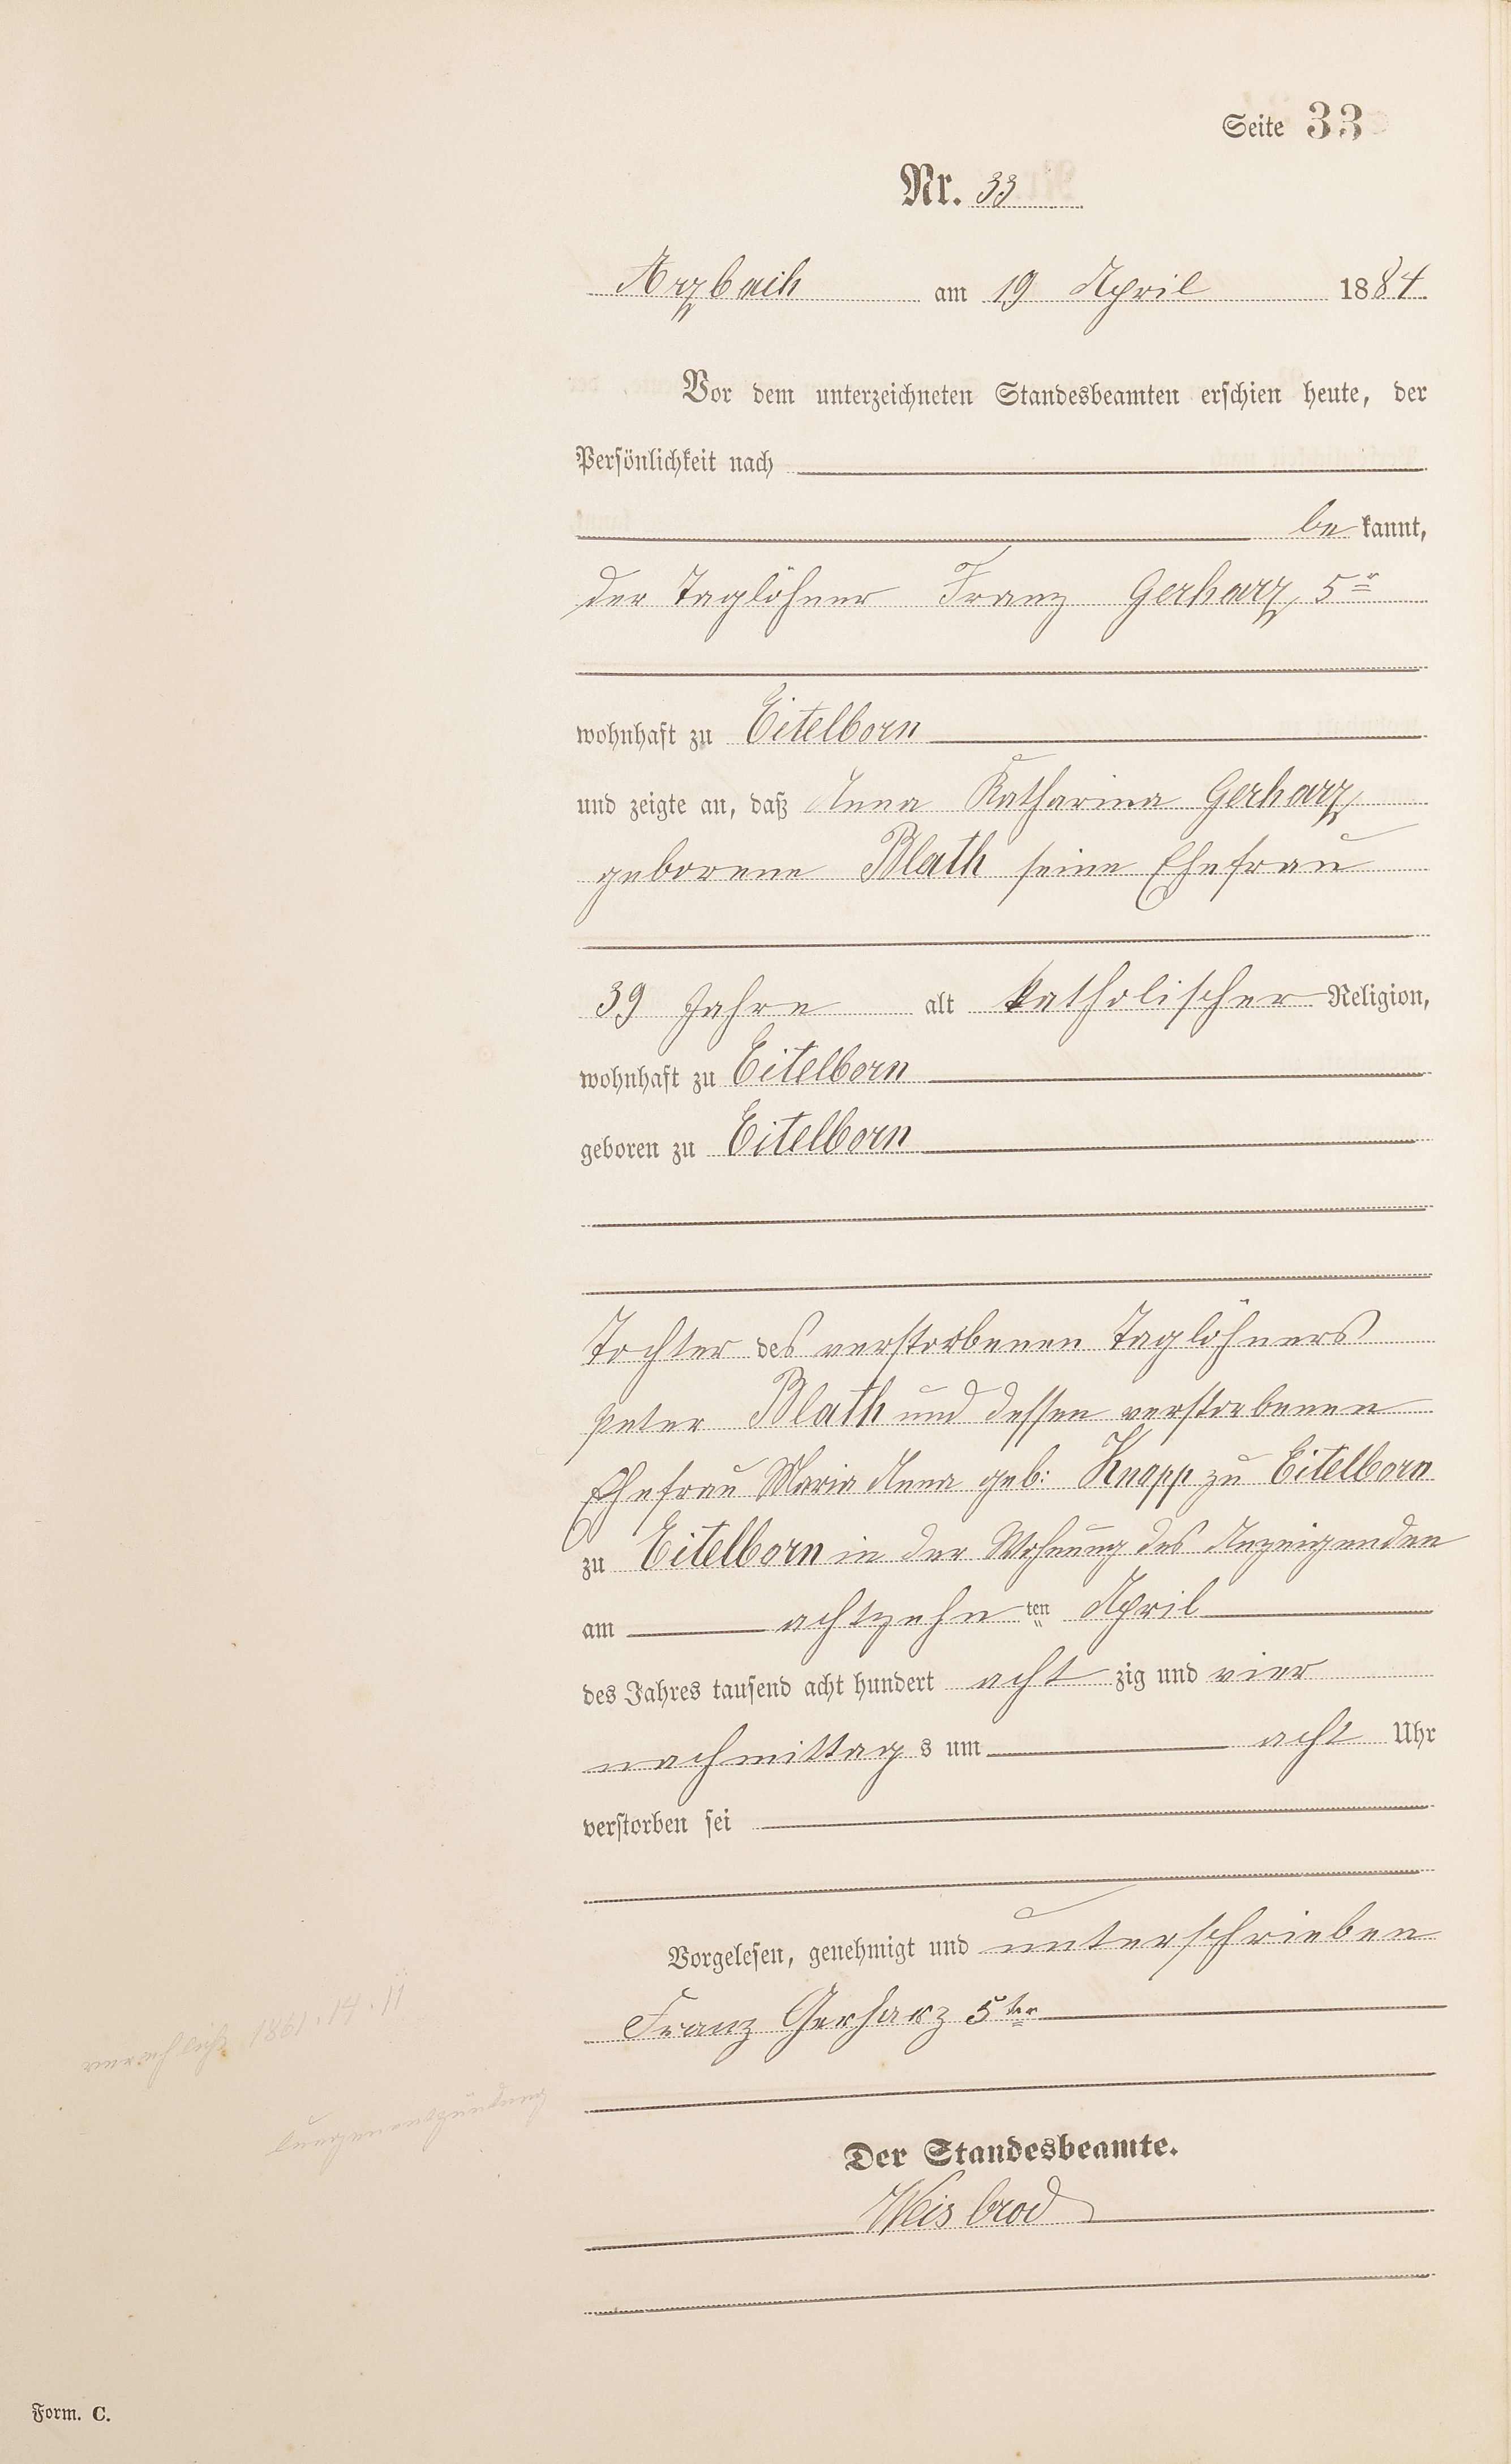 Seite 33
Nr. 33
Arzbach am 19 April 1884
Vor dem unterzeichneten Standesbeamten erschien heute, der
Persönlichkeit nach
be kannt,
der Taglöhner Franz Gerharz 5r
wohnhaft zu Eitelborn
und zeigte an, daß Anna Katharina Gerharz
geborene Blath seine Ehefrau
39 Jahre alt katholischer Religion,
wohnhaft zu Eitelborn
geboren zu Eitelborn
Tochter des verstorbenen Taglöhners
Peter Blath und dessen verstorbenen
Ehefrau Maria Anna geb: Knopp zu Eitelborn
zu Eitelborn in der Wohnung des Anzeigenden
am achtzehn ten April
des Jahres tausend acht hundert acht zig und vier
nachmittag s um acht Uhr
verstorben sei
Vorgelesen, genehmigt und unterschrieben
Franz Gerharz 5ter
verehlicht 1861. 14. 11
Lungenentzündung
Der Standesbeamte.
Weisbrod
Form. C.